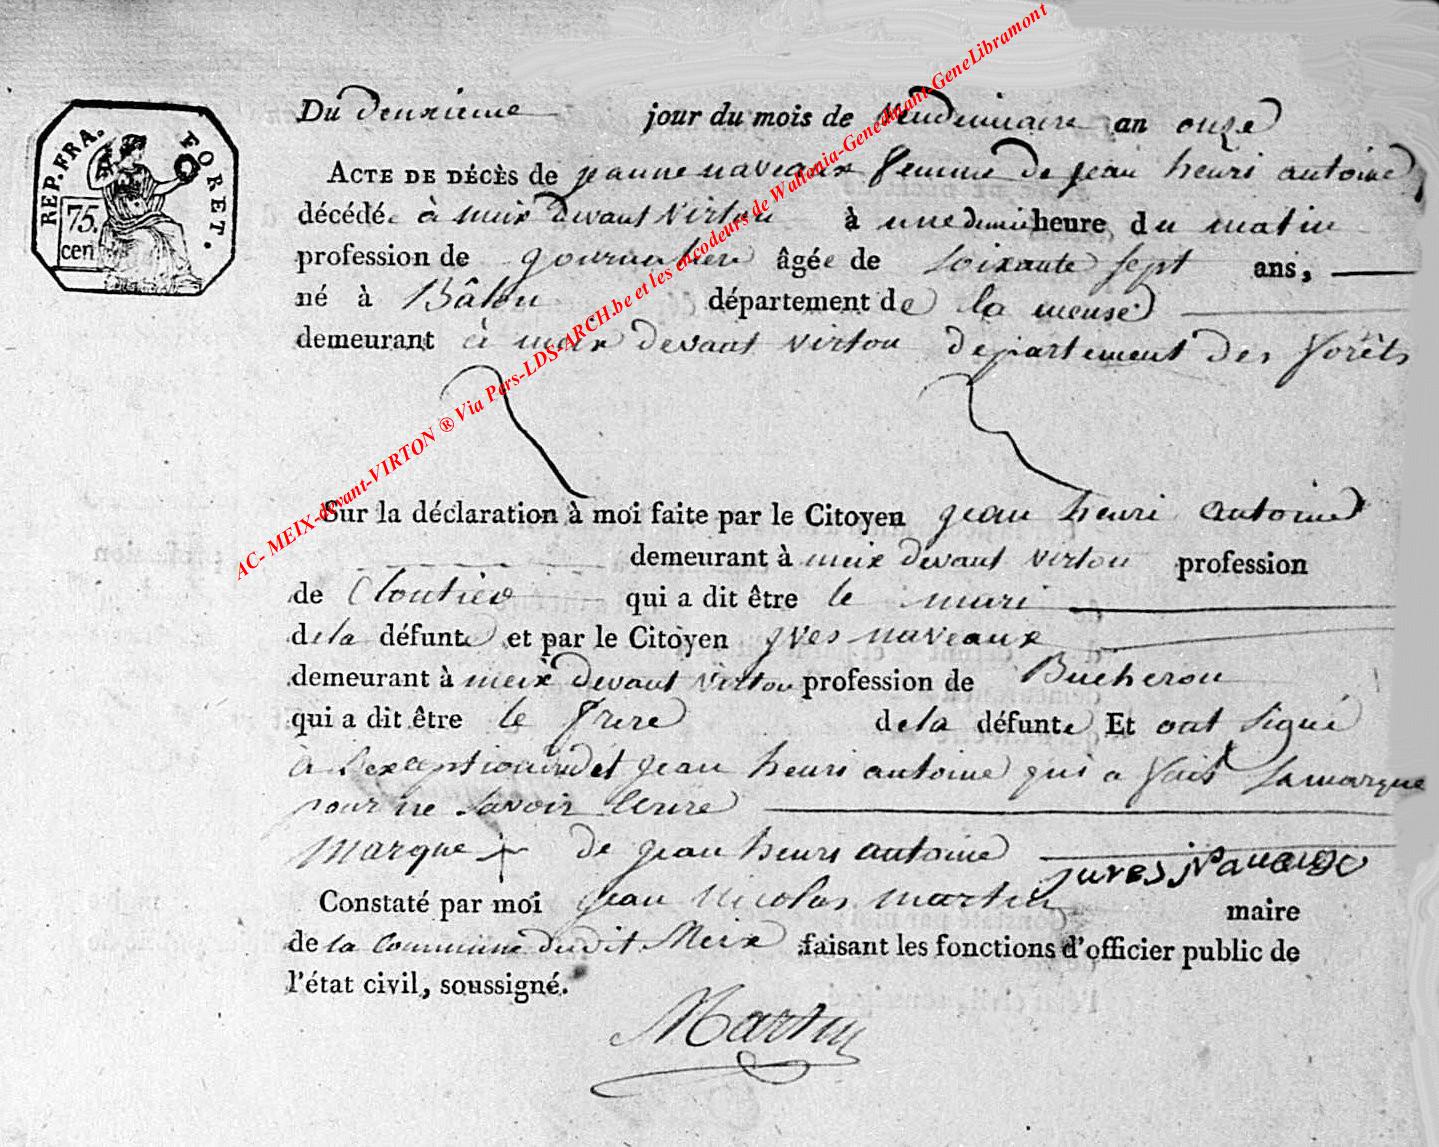 REP. FRA. FORET.
75.
cen
Du deuxieme jour du mois de Vendemiaire an onze
ACTE DE DÉCÈS de jeanne naveaux femme de jean henri antoine
décédée à meix devant virton à une demie heure du matin
profession de journaliere âgée de soixante sept ans,
né à Bâlon département de la meuse
demeurant à meix devant virton departement des forêts
Sur la déclaration à moi faite par le Citoyen jean henri antoine
demeurant à meix devant virton profession
de Cloutier qui a dit être le mari
de la défunte et par le Citoyen yves naveaux
demeurant à meix devant virton profession de Bucheron
qui a dit être le frere de la défunte Et ont signé
à l'exception jean henri antoine qui a fait sa marque
pour ne savoir
Marque + de jean henri antoine
yves Navaux
Constaté par moi jean nicolas martin maire
de la Commune dudit Meix faisant les fonctions d'officier public de
l'état civil, soussigné.
Martin
AC- MEIX-devant-VIRTON ® Via Pers-LDS-ARCH.be et les encodeurs de Wallonia-Genedinant-GeneLibramont